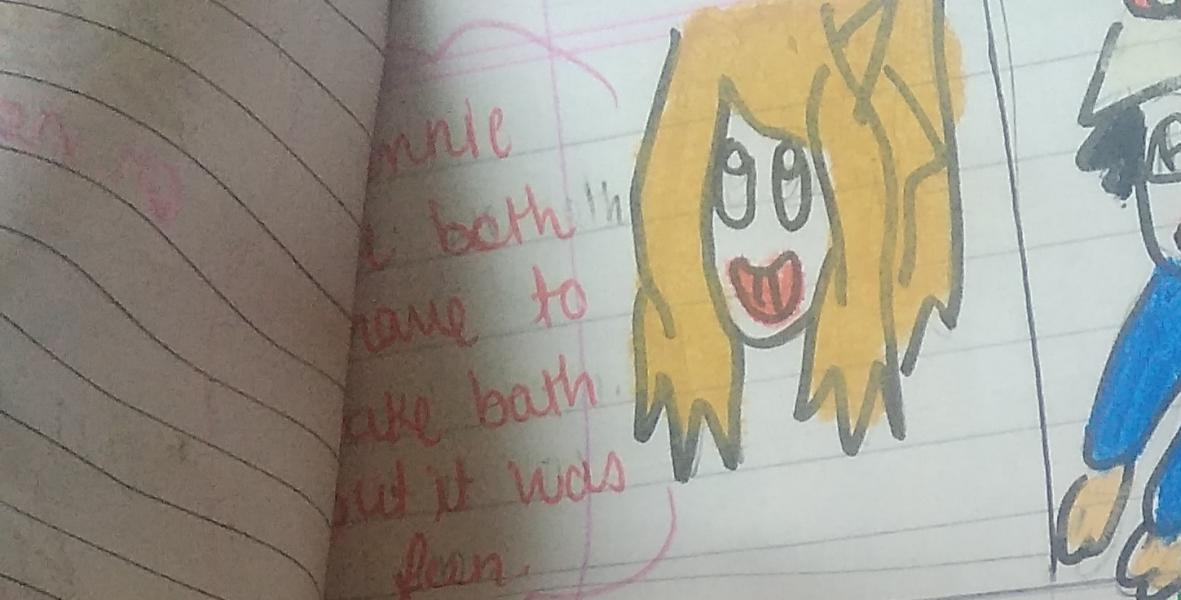 nnie
both
have to
take bath
but it was
fun